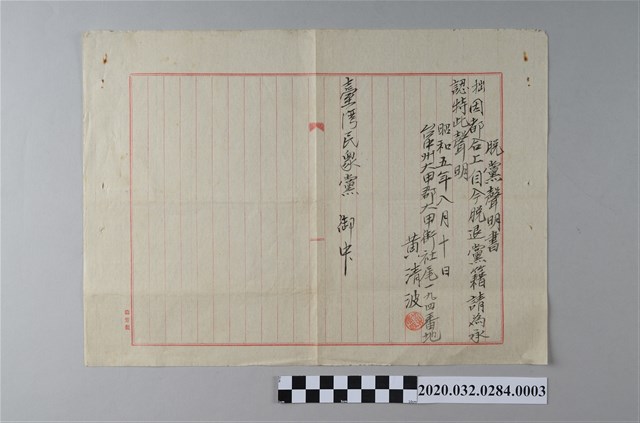 脫黨聲明書
拙因都合上目今脫退黨籍請為承
認特此聲明
昭和五年八月十日
台中州大甲郡大甲街社尾一九四番地
黃清波
臺灣民眾黨 御中
2020.032.0284.0003